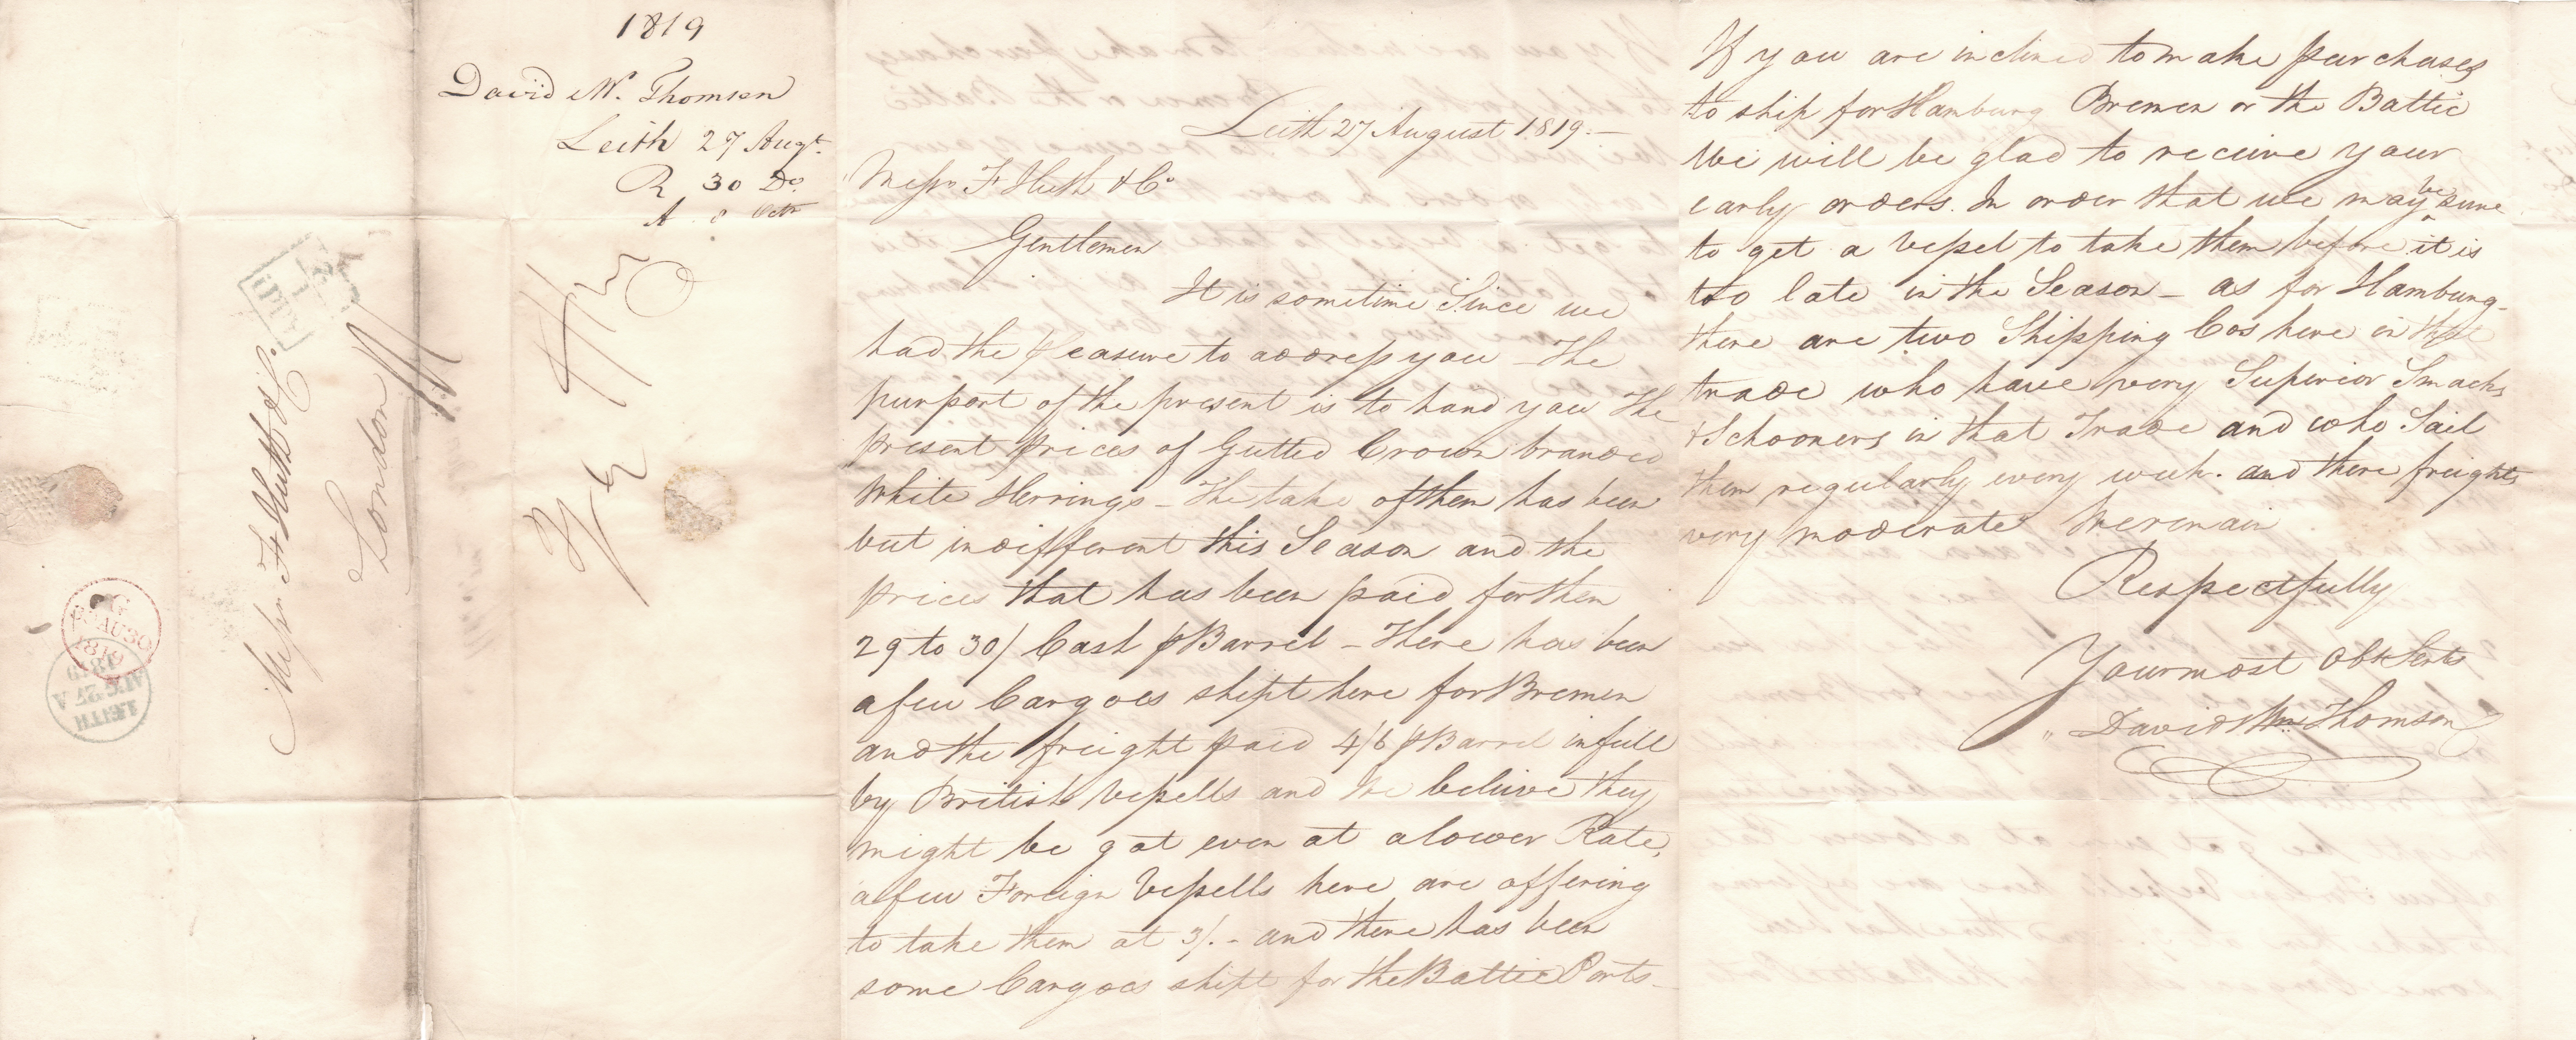 1819
David W. Thomson
Leith 27 Augt.
R 30 Do.
A 8 Octr
Messrs Fk Huth & Co.
London
LEITH
AUG 27 A
1819
AU 30
1819
Leith 27 August 1819.—
Messrs Fk Huth & Co
Gentlemen
It is sometime Since we
had the pleasure to address you – The
purport of the present is to hand you The
present prices of Gutted Crown branded
White Herrings – The take of them has been
but indifferent this Season and the
prices that has been paid for them
29 to 30/ Cash p Barrel – There has been
a few Cargoes shipt here for Bremen
and the freight paid 4/6 p Barrel in full
by British Vessells and we believe they
might be got even at a lower Rate,
a few Foreign Vessells here are offering
to take them at 3/. – and there has been
some Cargoes shipt for the Baltic Ports –
If you are inclined to make purchases
to ship for Hamburg Bremen or the Baltic
We will be glad to receive your
early orders. In order that we may be sure
to get a Vessel to take them before it is
too late in the Season – as for Hamburg –
there are two Shipping Cos here in that
trade who have very Superior Smacks
& Schooners in that Trade and who Sail
them regularly every week. and there freights
very moderate We remain
Respectfully
Your most Obt Servts
David Wm. Thomson